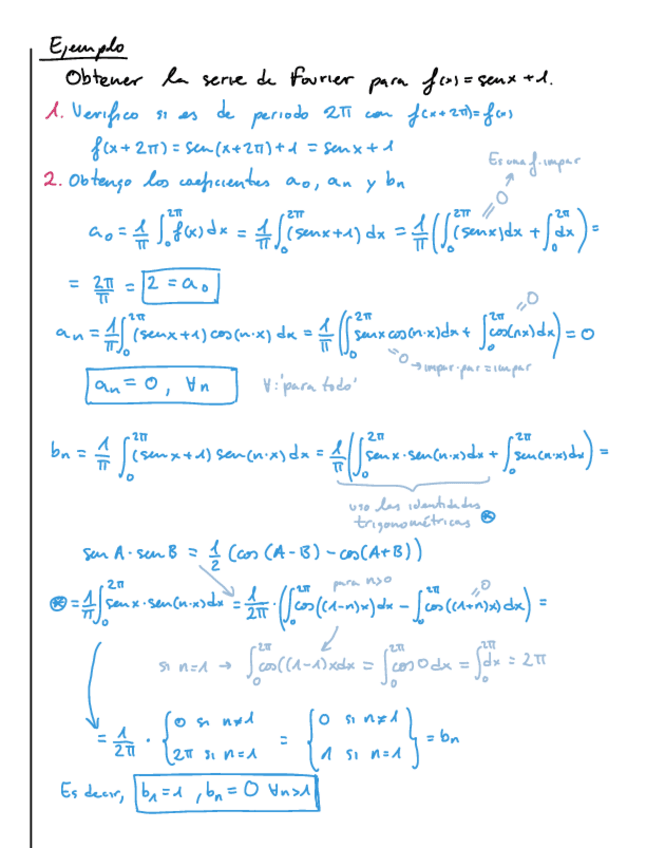 Ejemplo
Obtener la serie de Fourier para f(x) = senx + 1.
1. Verifico si es de periodo 2π con f(x+2π) = f(x)
f(x+2π) = sen(x+2π) + 1 = senx + 1
Es una f. impar
2. Obtengo los coeficientes a₀, aₙ y bₙ
a₀ = 1/π ∫₀^2π f(x) dx = 1/π ∫₀^2π (senx+1) dx = 1/π (∫₀^2π (senx) dx + ∫₀^2π dx) =
= 0
= 2π/π = 2 = a₀
aₙ = 1/π ∫₀^2π (senx+1) cos(n·x) dx = 1/π (∫₀^2π senx cos(n·x) dx + ∫₀^2π cos(nx) dx) = 0
= 0
= 0 → impar·par = impar
aₙ = 0, ∀n
∀: 'para todo'
bₙ = 1/π ∫₀^2π (senx+1) sen(n·x) dx = 1/π (∫₀^2π senx·sen(n·x) dx + ∫₀^2π sen(n·x) dx) =
uso las identidades
trigonométricas ⊛
sen A · sen B = 1/2 (cos(A-B) - cos(A+B))
para n>0
= 0
⊛ = 1/π ∫₀^2π senx·sen(n·x) dx = 1/2π · (∫₀^2π cos((1-n)x) dx - ∫₀^2π cos((1+n)x) dx) =
si n=1 → ∫₀^2π cos((1-1)x dx = ∫₀^2π cos 0 dx = ∫₀^2π dx = 2π
= 1/2π · { 0 si n≠1 = { 0 si n≠1 } = bₙ
2π si n=1 1 si n=1
Es decir, b₁ = 1, bₙ = 0 ∀n>1